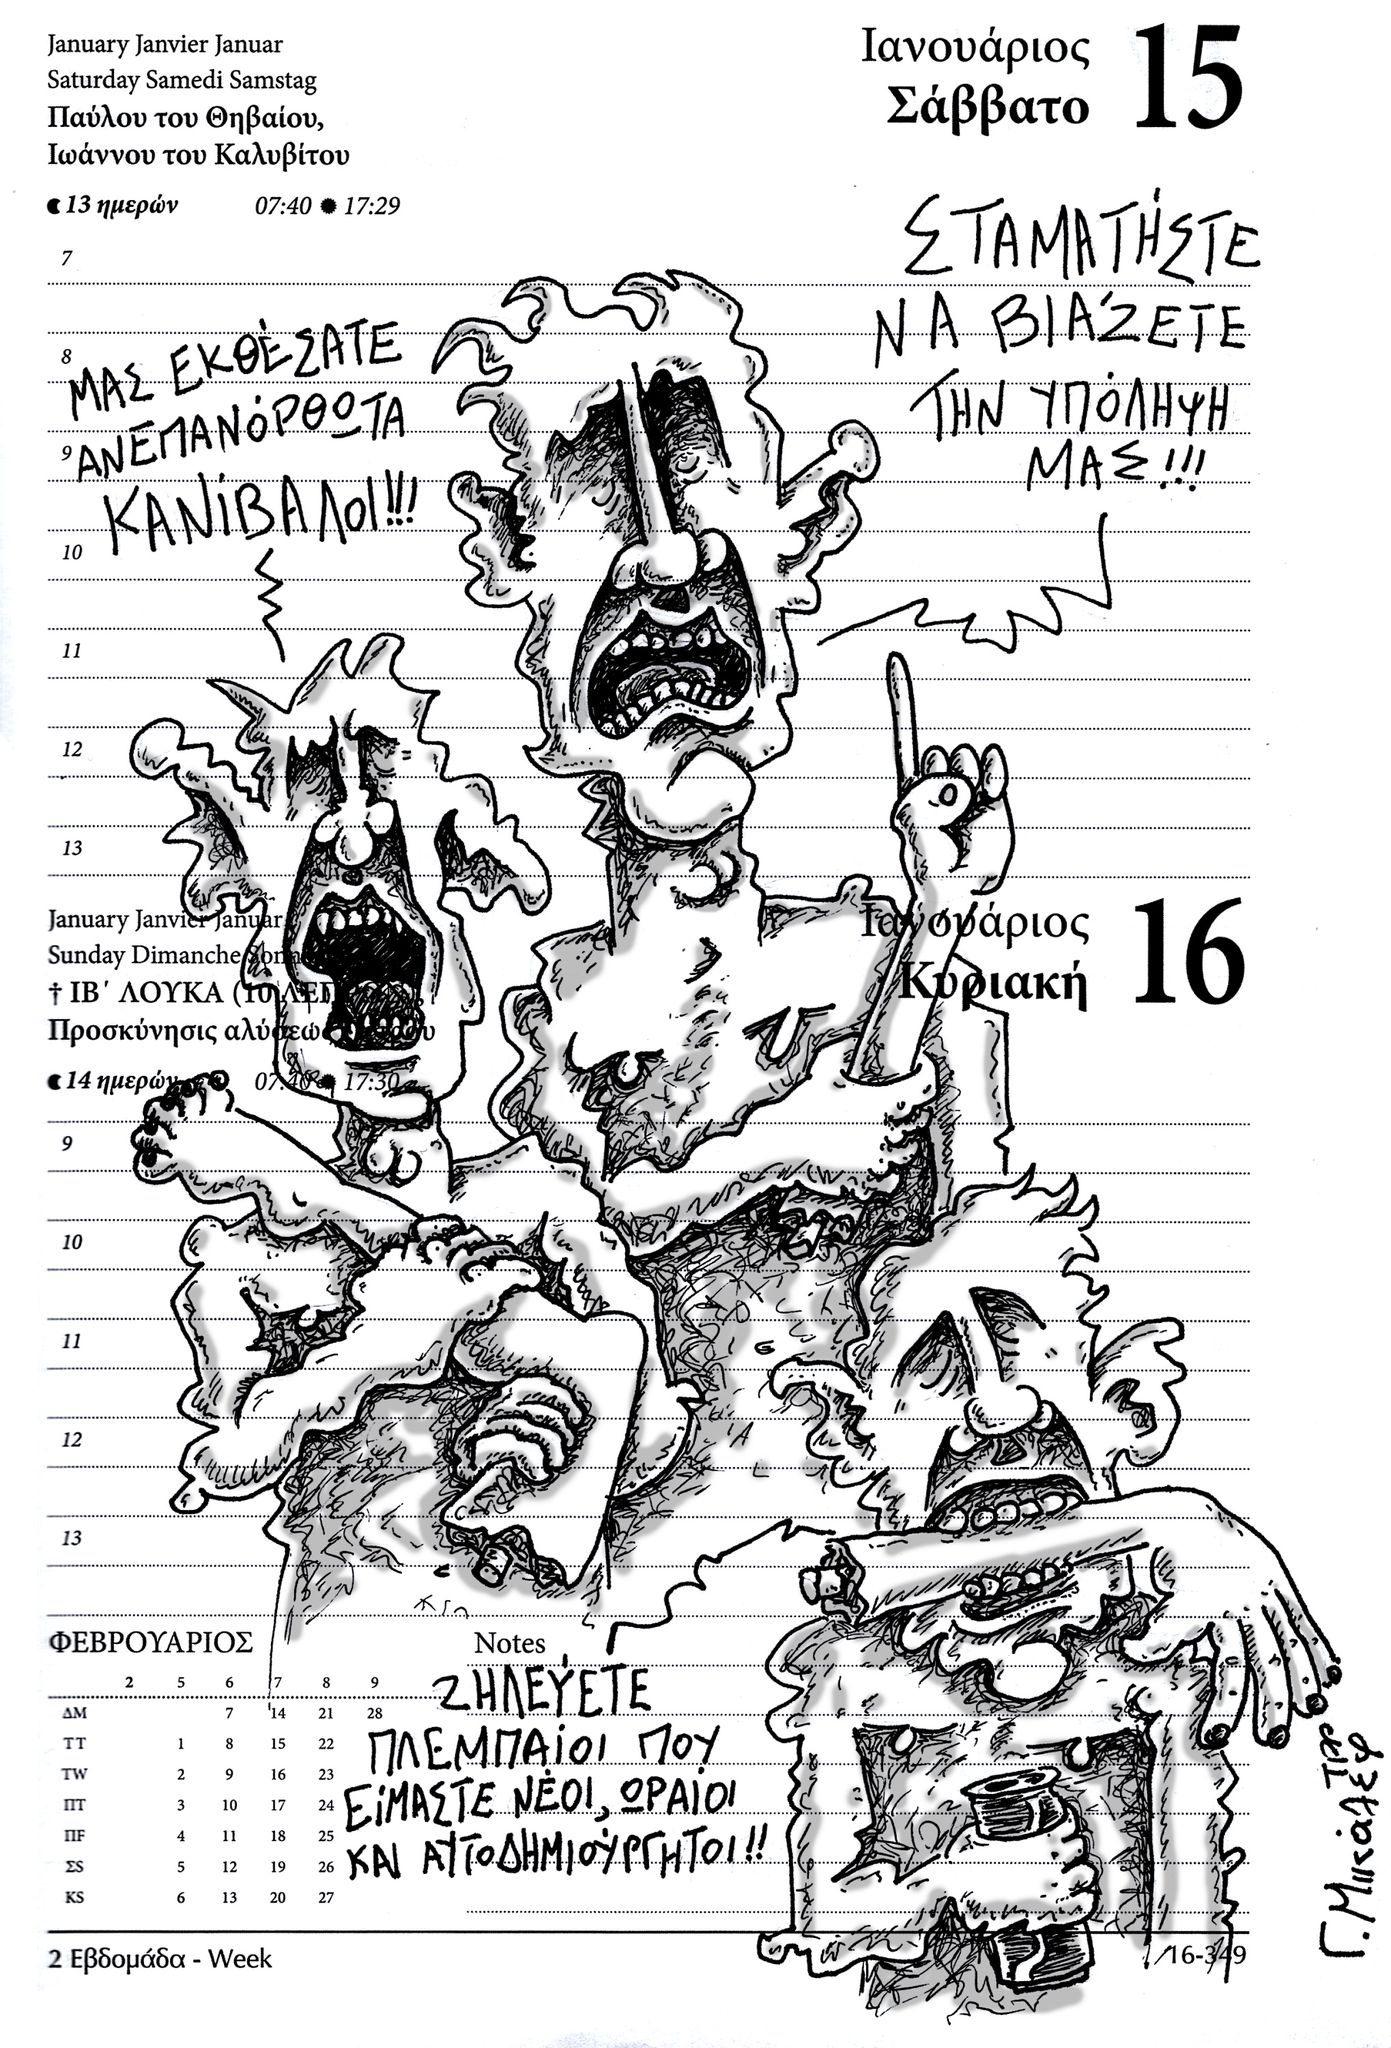 January Janvier Januar
Saturday Samedi Samstag
Παύλου του Θηβαίου,
Ιωάννου του Καλυβίτου
13 ημερών 07:40 17:29
Ιανουάριος
Σάββατο 15
ΣΤΑΜΑΤΉΣΤΕ
ΝΑ ΒΙΆΖΕΤΕ
ΤΗΝ ΥΠΌΛΗΨΗ
ΜΑΣ!!!
ΜΑΣ ΕΚΘΈΣΑΤΕ
ΑΝΕΠΑΝΌΡΘΩΤΑ
ΚΑΝΊΒΑΛΟΙ!!!
7
8
9
10
11
12
13
January Janvier Januar
Sunday Dimanche
† ΙΒ΄ ΛΟΥΚΑ (10 ΛΕΠ
Προσκύνησις αλύσεως
14 ημερών 07:40 17:30
Ιανουάριος
Κυριακή 16
9
10
11
12
13
ΦΕΒΡΟΥΑΡΙΟΣ
2 5 6 7 8 9
ΔM 7 14 21 28
ΤT 1 8 15 22
ΤW 2 9 16 23
ΠT 3 10 17 24
ΠF 4 11 18 25
ΣS 5 12 19 26
ΚS 6 13 20 27
Notes
ΖΗΛΕΎΕΤΕ
ΠΛΕΜΠΑΊΟΙ ΠΟΥ
ΕΊΜΑΣΤΕ ΝΈΟΙ, ΩΡΑΊΟΙ
ΚΑΙ ΑΥΤΟΔΗΜΙΟΎΡΓΗΤΟΙ!!
2 Εβδομάδα - Week
16-349